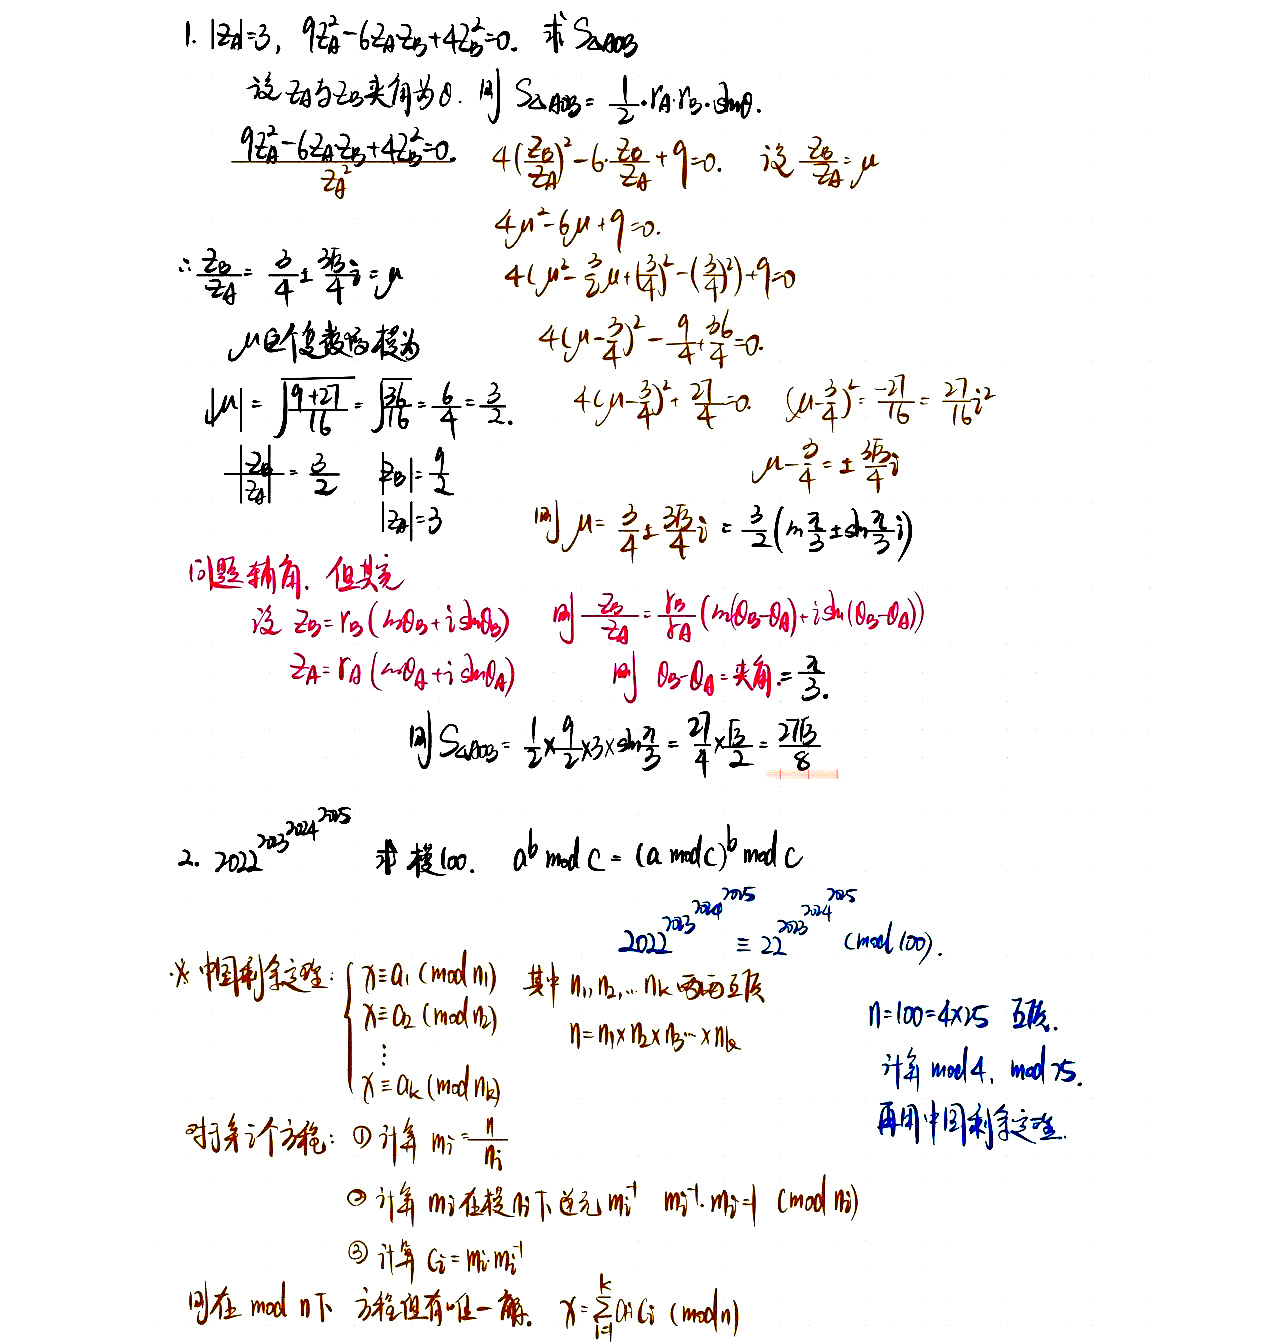 1. |z_A|=3, 9z_A²-6z_A z_B+4z_B²=0. 求 S△AOB
设 z_A与z_B夹角为θ. 则 S△AOB = 1/2·r_A·r_B·sinθ.
(9z_A²-6z_A z_B+4z_B²=0.)/z_A² 4(z_B/z_A)²-6·z_B/z_A+9=0. 设 z_B/z_A=μ
4μ²-6μ+9=0.
∴ z_B/z_A = 3/4 ± 3√3/4 i = μ 4(μ²-3/2μ+(3/4)²-(3/4)²)+9=0
μ这个复数的模为 4(μ-3/4)²-9/4+36/4=0.
|μ| = √((9+27)/16) = √(36/16) = 6/4 = 3/2. 4(μ-3/4)²+27/4=0. (μ-3/4)²=-27/16=27/16 i²
|z_B/z_A| = 3/2 |z_B|=9/2 μ-3/4=±3√3/4 i
|z_A|=3 则 μ=3/4±3√3/4 i = 3/2(cos π/3 ± sin π/3 i)
问题辐角. 但其实
设 z_B=r_B(cosθ_B+i sinθ_B) 则 z_B/z_A = r_B/r_A (cos(θ_B-θ_A)+i sin(θ_B-θ_A))
z_A=r_A(cosθ_A+i sinθ_A) 则 θ_B-θ_A=夹角=π/3.
则 S△AOB = 1/2×9/2×3×sin π/3 = 27/4×√3/2 = 27√3/8
2. 2022^2023^2024^2025 求 模100. a^b mod c = (a mod c)^b mod c
2022^2023^2024^2025 ≡ 22^2023^2024^2025 (mod 100).
※ 中国剩余定理: { x≡a₁ (mod n₁) 其中 n₁, n₂, … n_k 两两互质
x≡a₂ (mod n₂) n=n₁×n₂×n₃…×n_k
⋮
x≡a_k (mod n_k)
n=100=4×25 互质.
计算 mod 4, mod 25.
再用中国剩余定理.
对于第i个方程: ① 计算 m_i = n/n_i
② 计算 m_i在模n_i下逆元 m_i⁻¹ m_i⁻¹·m_i=1 (mod n_i)
③ 计算 c_i=m_i·m_i⁻¹
则在 mod n下 方程组有唯一解. x=∑_{i=1}^{k} a_i c_i (mod n)